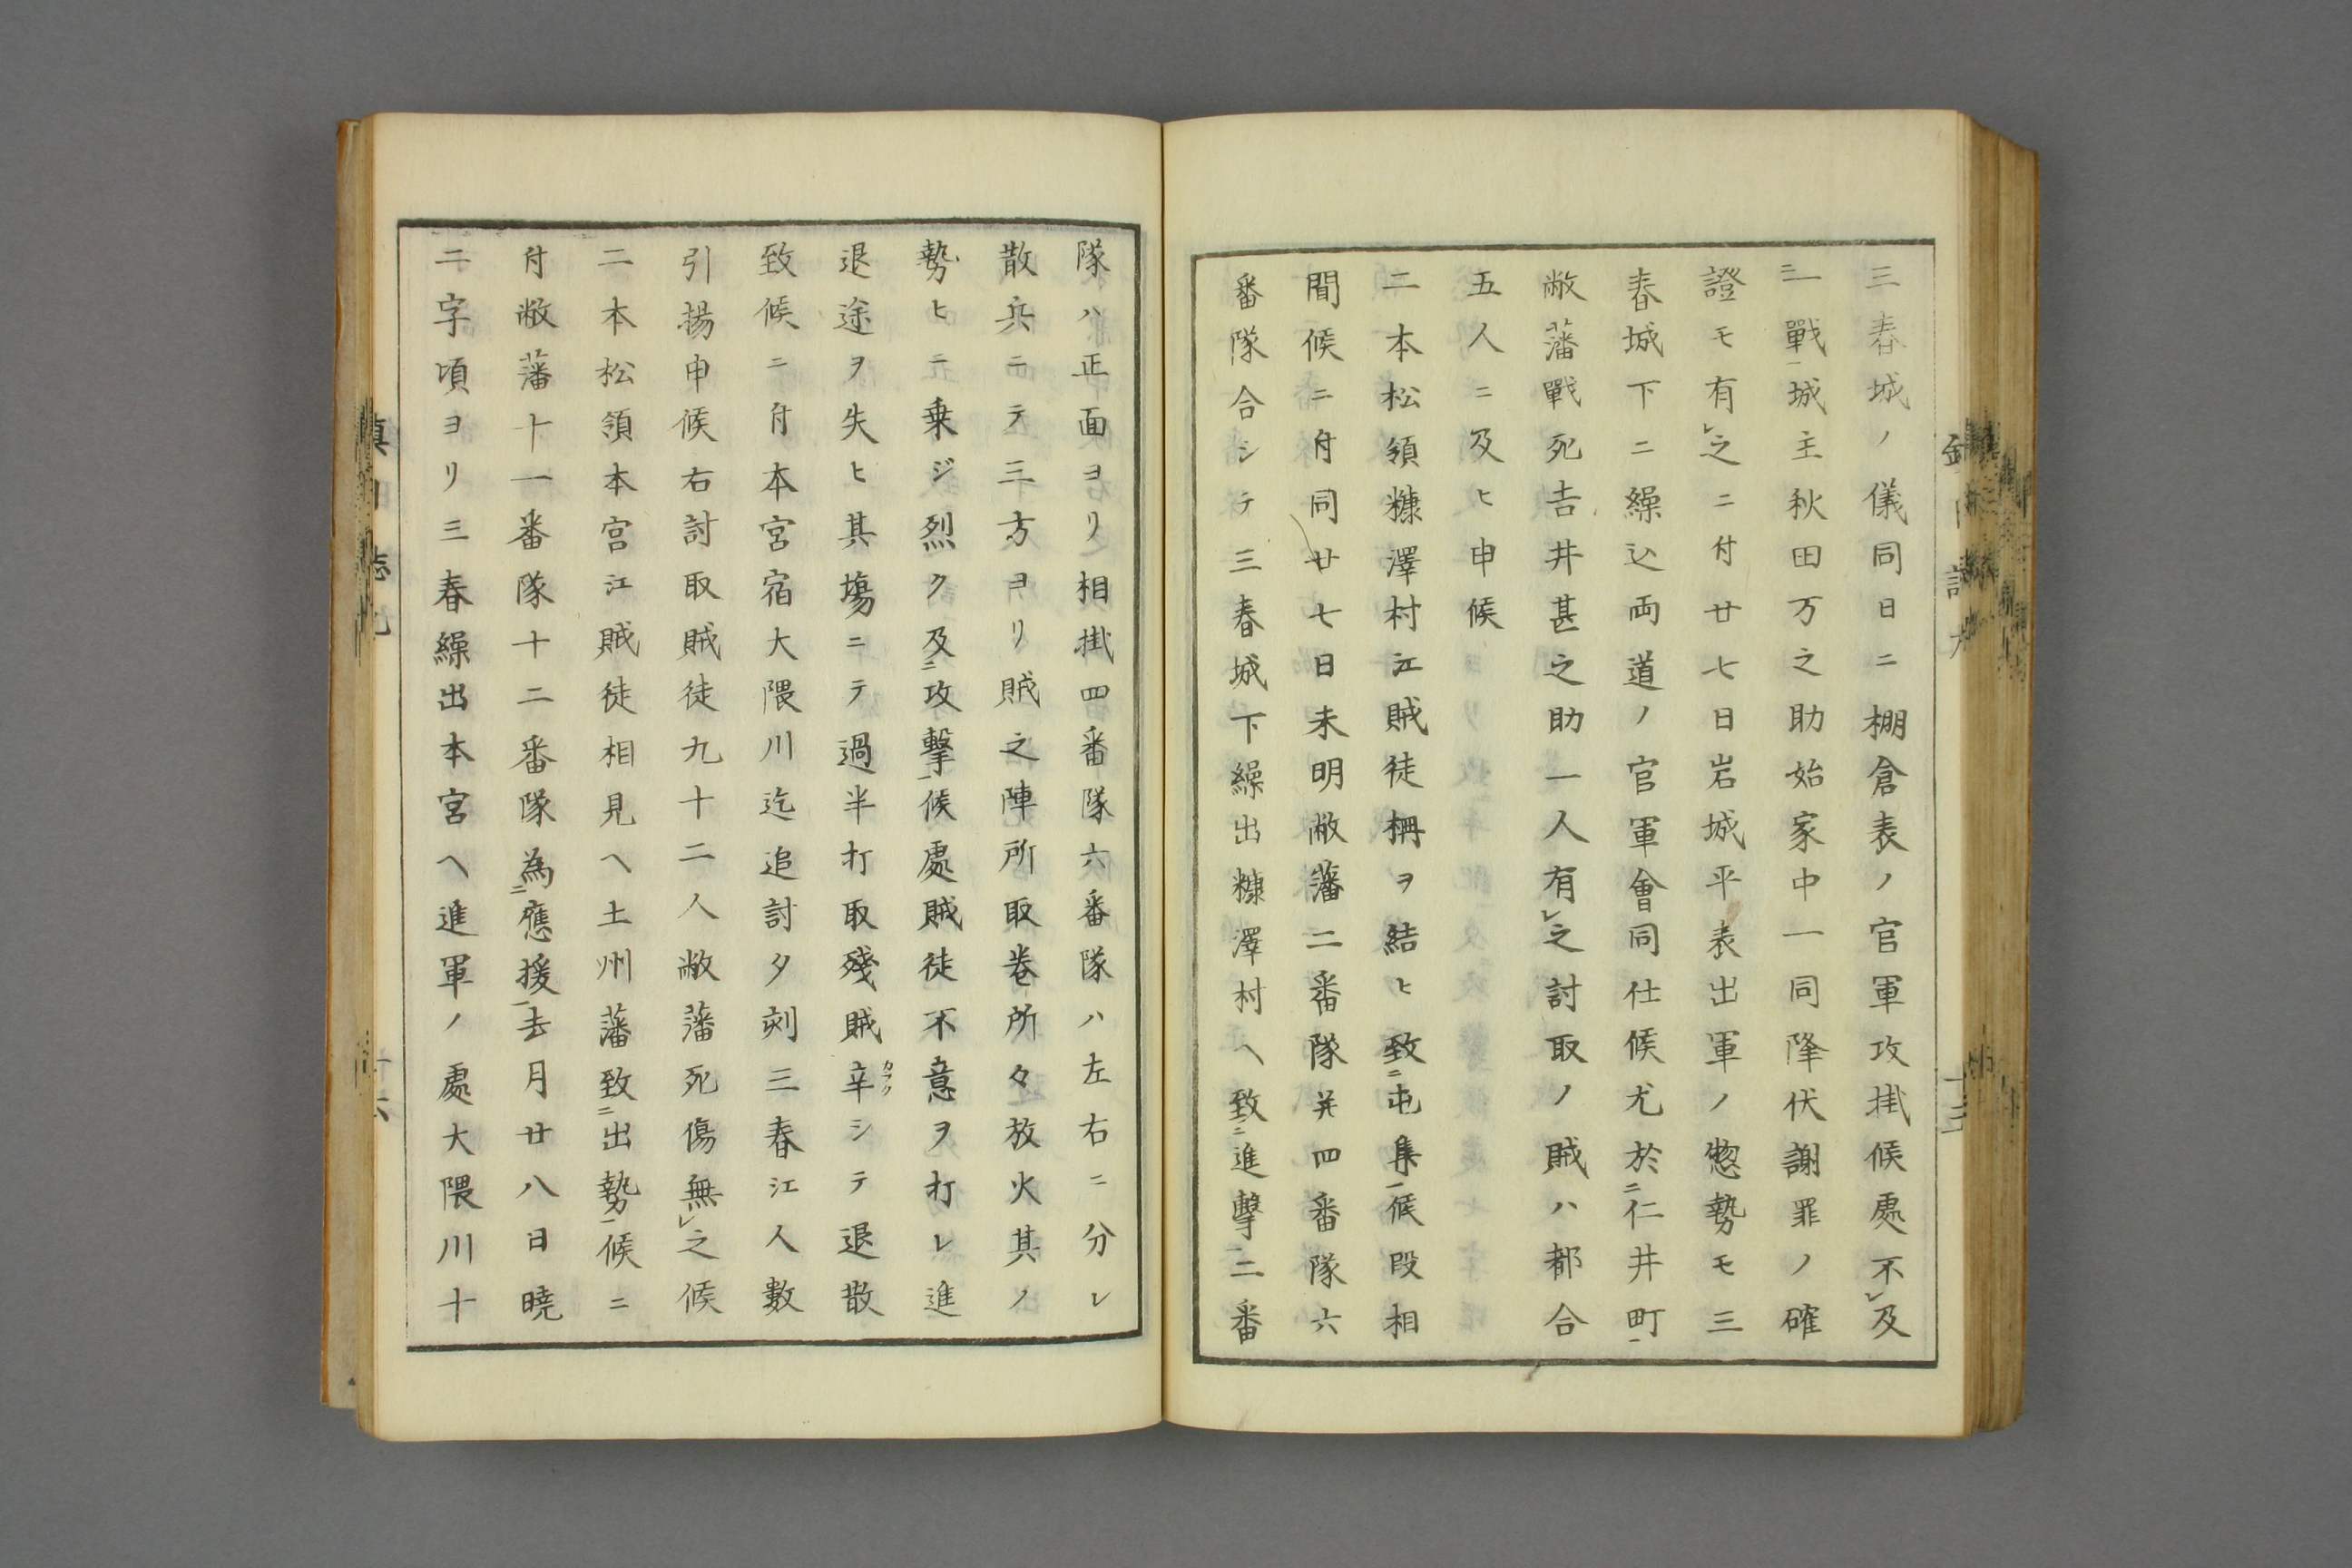 三春城ノ儀同日ニ棚倉表ノ官軍攻掛候處不レ及
二一戰一城主秋田万之助始家中一同降伏謝罪ノ確
證モ有レ之ニ付廿七日岩城平表出軍ノ惣勢モ三
春城下ニ繰込両道ノ官軍會同仕候尤於二仁井町一
敝藩戰死吉井甚之助一人有レ之討取ノ賊ハ都合
五人ニ及ヒ申候
二本松領糠澤村江賊徒柵ヲ結ヒ致二屯集一候段相
聞候ニ付同廿七日未明敝藩二番隊并四番隊六
番隊合シテ三春城下繰出糠澤村ヘ致二進擊一二番
隊ハ正面ヨリ相掛四番隊六番隊ハ左右ニ分レ
散兵ニテ三方ヨリ賊之陣所取巻所々放火其ノ
勢ヒニ乗ジ烈ク及二攻擊一候處賊徒不意ヲ打レ進
退途ヲ失ヒ其塲ニテ過半打取殘賊辛カラクシテ退散
致候ニ付本宮宿大隈川迄追討夕刻三春江人數
引揚申候右討取賊徒九十二人敝藩死傷無レ之候
二本松領本宮江賊徒相見ヘ土州藩致二出勢一候ニ
付敝藩十一番隊十二番隊為二應援一去月廿八日曉
二字頃ヨリ三春繰出本宮ヘ進軍ノ處大隈川十